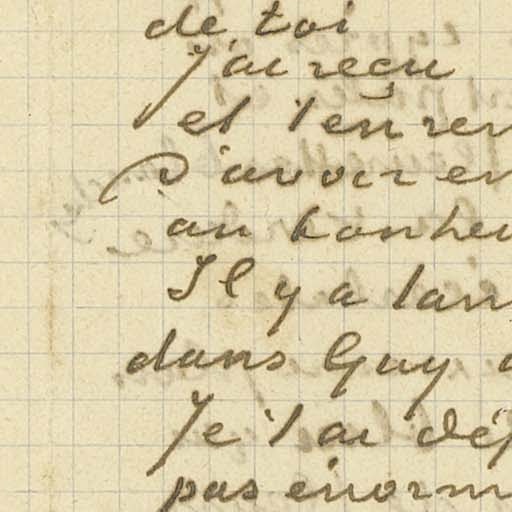 de toi
J'ai reçu
et t'en rem
D'avoir en
au bonheu
Il y a tan
dans Guy d
Je t'ai déj
pas énorm